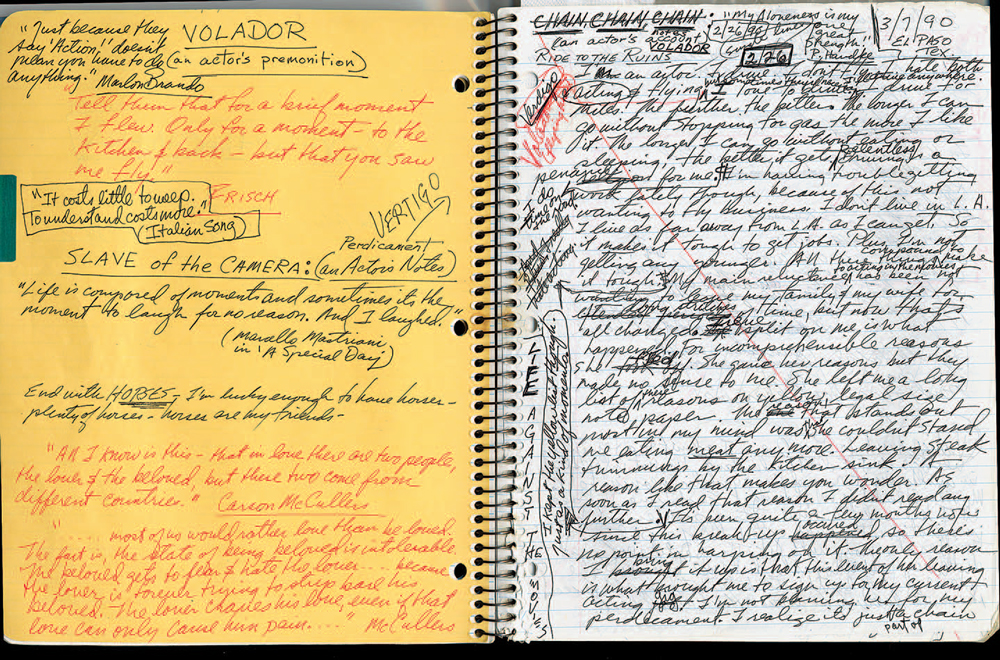 "Just because they
say 'Action!' doesn't
mean you have to do
anything." Marlon Brando
VOLADOR
(an actor's premonition)
"Tell them that for a brief moment
I flew. Only for a moment - to the
kitchen & back - but that you saw
me fly."
FRISCH
"It costs little to weep.
To understand costs more."
(Italian Song)
VERTIGO
Perdicament
SLAVE of the CAMERA: (an Actor's Notes)
"Life is composed of moments and sometimes its the
moment to laugh for no reason. And I laughed."
(Marcello Mastriani
in 'A Special Day')
End with HORSES - I'm lucky enough to have horses-
plenty of horses - horses are my friends -
"All I know is this - that in love there are two people,
the lover & the beloved, but these two come from
different countries." Carson McCullers
"..... most of us would rather love than be loved.
The fact is, the state of being beloved is intolerable.
The beloved gets to fear & hate the lover - because
the lover is forever trying to strip bare his
beloved. The lover craves his love, even if that
love can only cause him pain...." McCullers
CHAIN, CHAIN, CHAIN:
"My Aloneness is my
one
great
strength."
P. Handke
3/7/90
EL PASO
TEX.
(an actor's account)
VOLADOR
(2/26/90)
RIDE TO THE RUINS
226
Vertigo
I am an actor. I hate both
acting & flying. I drive for
miles. The further the better. The longer I can
go without stopping for gas the more I like
it. The longer I can go without eating or
sleeping, the better it gets. Relentless driving is a
for me. I'm having trouble getting
work lately though because of this not
wanting to fly business. I don't live in L.A.
I live as far away from L.A. as I can get. So
it makes it tough to get jobs. Plus I'm not
getting any younger. All these things compound to make
it tough. My main resistance to acting in the movies has been
wanting to leave my family, my wife for
of time, but now that's
all changed. split on me is what
happened. For incomprehensible reasons
she She gave me reasons but they
made no sense to me. She left me a long
list of reasons on yellow legal size
note paper. The that stands out
most in my mind was that she couldn't stand
me eating meat any more. Leaving steak
trimmings by the kitchen sink. A
reason like that makes you wonder. As
soon as I read that reason I didn't read any
further. It's been quite a few months now
since this break-up happened occured so there's
no point in harping on it. The only reason
I bring it up is that this event of her leaving
is what brought me to sign up for my current
acting job. I'm not blaming her for my
perdicament. I realize its just part of a chain
LIFE AGAINST THE MOVIES
I kept the yellow list though.
Just as a kind of momento.